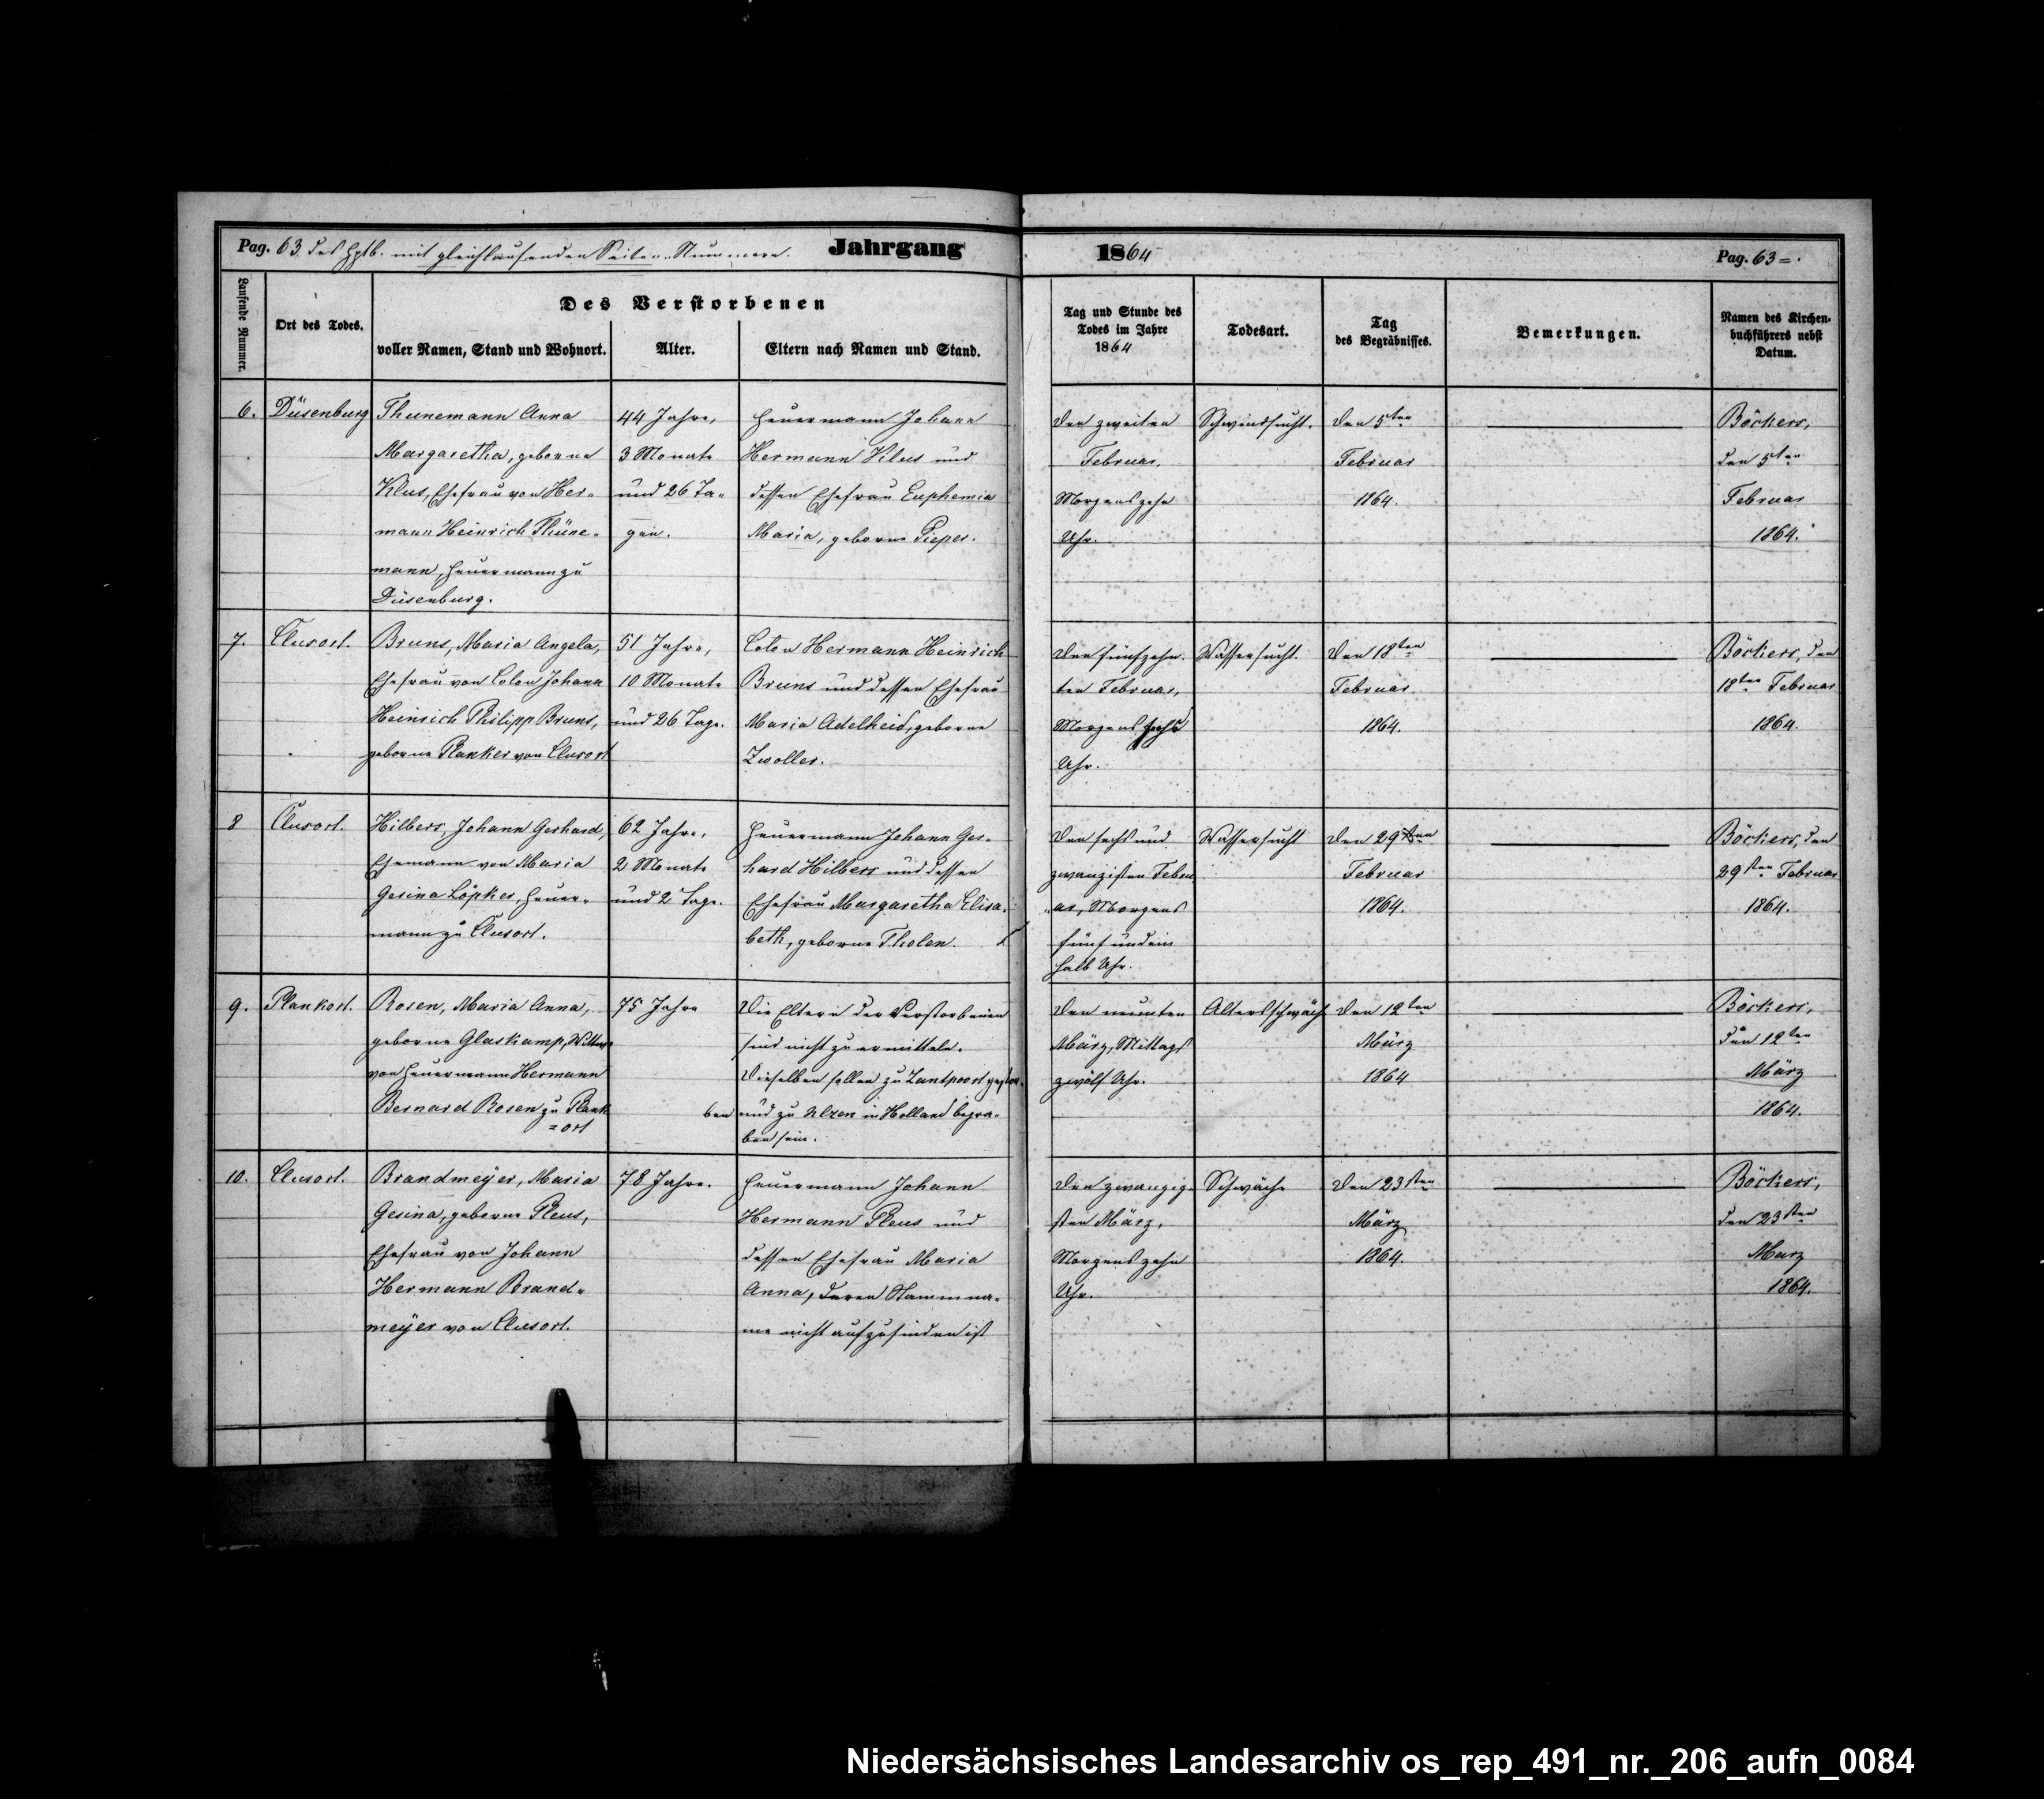 Pag. 63 des Hptb. mit gleichlaufenden Seiten-Nummern. Jahrgang 1864 Pag. 63
Laufende Nummer.
Ort des Todes.
Des Verstorbenen
voller Namen, Stand und Wohnort.
Alter.
Eltern nach Namen und Stand.
Tag und Stunde des
Todes im Jahre
1864
Todesart.
Tag
des Begräbnisses.
Bemerkungen.
Namen des Kirchen-
buchführers nebst
Datum.
6.
Düsenburg
Thunemann Anna
Margaretha, geborne
Klus, Ehefrau von Her-
mann Heinrich Thüne-
mann, Heuermann zu
Düsenburg.
44 Jahre,
3 Monate
und 26 Ta-
gen.
Heuermann Johann
Hermann Klus und
dessen Ehefrau Euphemia
Maria, geborne Pieper.
Den zweiten
Februar,
Morgens zehn
Uhr.
Schwindsucht.
Den 5ten
Februar
1864.
Böckers,
den 5ten
Februar
1864.
7.
Clusort.
Bruns, Maria Angela,
Ehefrau von Colon Johann
Heinrich Philipp Bruns,
geborne Planker von Clusort
51 Jahre,
10 Monate
und 26 Tage.
Colon Hermann Heinrich
Bruns und dessen Ehefrau
Maria Adelheid, geborne
Zwoller.
Den fünfzehn-
ten Februar,
Morgens sechs
Uhr.
Wassersucht.
Den 18ten
Februar
1864.
Böckers, den
18ten Februar
1864.
8
Clusort.
Hilbers, Johann Gerhard,
Ehemann von Maria
Gesina Löpker, Heuer-
mann zu Clusort.
62 Jahre,
2 Monate
und 2 Tage.
Heuermann Johann Ger-
hard Hilbers und dessen
Ehefrau Margaretha Elisa-
beth, geborne Tholen.
Den sechs und
zwanzigsten Febru
-ar, Morgens
fünf und ein
halb Uhr.
Wassersucht
Den 29sten
Februar
1864.
Böckers, den
29sten Februar
1864.
9.
Plankort.
Rosen, Maria Anna,
geborne Glaskamp, Wittwe
von Heuermann Hermann
Bernard Rosen zu Plank
=ort
75 Jahre
Die Eltern der Verstorbenen
sind nicht zu ermitteln.
Dieselben sollen zu Zantpoort gestor-
ben und zu Ulzen in Holland begra-
ben sein.
Den neunten
März, Mittags
zwölf Uhr.
Altersschwäche
Den 12ten
März
1864
Böckers,
den 12ten
März
1864.
10.
Clusort.
Brandmeÿer, Maria
Gesina, geborne Pleus,
Ehefrau von Johann
Hermann Brand-
meÿer von Clusort.
78 Jahre.
Heuermann Johann
Hermann Pleus und
dessen Ehefrau Maria
Anna, deren Stammna-
me nicht aufzufinden ist
Den zwanzig-
sten März,
Morgens zehn
Uhr.
Schwäche
Den 23sten
März
1864.
Böckers,
den 23sten
Marz
1864.
Niedersächsisches Landesarchiv os_rep_491_nr._206_aufn_0084